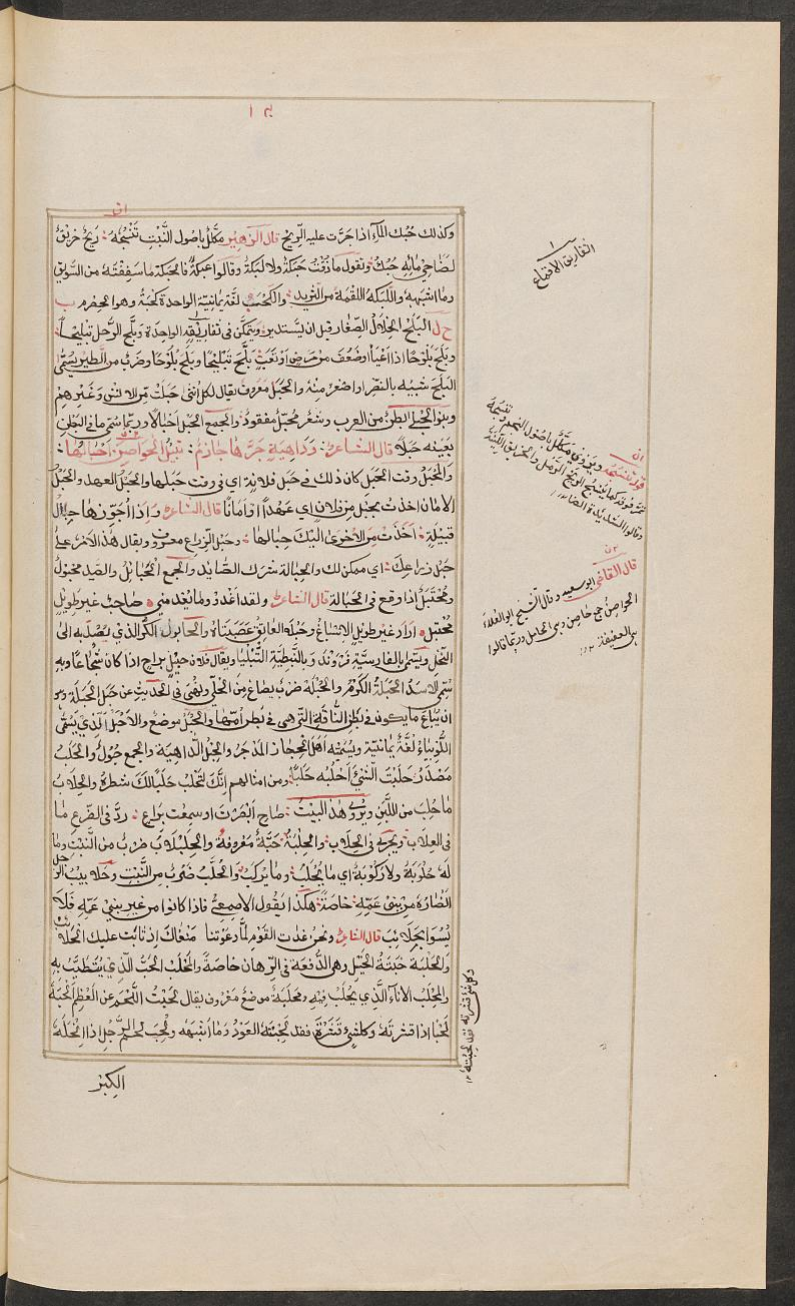 وكذلك حُبُك الماء اذا جَرَت عليه الرّيح قال الزهير مكلَّل باصول النَّبْتِ تَنْسُجُهُ : رَيحٌ خريقٌ
لضاحي مائِهِ حُبُكُ وتقول ما ذقت حَبَكَة ولا لَبَكَة وقالوا عبَكة فالحبكة ما سَفِفْتَه من السَّويق
وما اشبهه واللَّبَكَة اللقمة من الثريد والكَحَب لغة يمانية الواحدة كَحْبَة وهو الحِصْرِم ب
ح ل البَلَح الخلال الصِّغار قبل ان يستدير ويتمكّن فى تفاريقه الواحدة وبلّح الرَّجل تبليحًا
وبلَح بلُوحًا اذا اَعْيَا وضعُف من مَرَضٍ اَوْ تعَبٍ بلَّح تَبْليحًا وبَلَح بُلُوحًا وضَرْب من الطير يسمّى
البلَح شبيه بالنسر او اصغر منهُ والحَبَل معروف يقال لكل انثى حَبِلَتْ من الانس وغيرهم
وبنو الحُبلى ابطنٌ من العرب وشَعْر مُحَبَّل مضفور والجمع الحَبَل اَحْبالا وربّما سمّى ما فى البَطن
بعينه حَبَلًا قال الشاعر : وَدَاهِيَةٍ جَرَّهَا جَارِمٌ : تبيل الحَواصِنَ اَحْبالَها :
والمَحْبَلُ وقت الحَبَل كان ذلك فى مَحْبَل فلانة اى فى وقت حَبَلها والحَبْلُ العهد والحَبْلُ
الامان اخذت بحَبْلٍ من فلان اى عَهْدًا او اَمانًا قال الشاعر واِذا اَجوّزها حِبالُ
قبيلةٍ : اَخَذَتْ مِنَ الاُخرى اليك حِبالَها : وحَبْل الذِّراع معروف ويقال هذا الامر على
حَبْل ذِرَاعِكَ : اى ممكن لك والحِبالة شَرَك الصَّائد والجمع الحَبائل والصيد مَحْبُول
ومُحْتَبَل اِذا وقع فى الحِبالة قال الشاعر ولقد اغدُو وما يُعْدِمني : صاحبٌ غير طويلِ
المُحْتَبَل : اراد غير طويل الارساغ وحَبْلة العاتق عَصَبَتاهُ والحابول الكرّ الذي يصعد به الى
النخل ويسمى بالفارسيّة فَرْوَنْد وبالنبطيّة التّبْليا ويقال فلان حبيل براح اذا كان شجاعًا وبه
سمى الاسد الحَبَلة الكَرْم والحُبْلة ضرب يصاغ من الحلّي ونُهى فى الحديث عن حَبَل الحَبَلة وهو
ان يباع ما يكون فى بطن النّاقة التى هى فى بطن امّها والحُبَلُ موضع والاَحْبَل الّذي يسمّى
اللُّوبياءُ لغة يمانيّة ويسمّيه اهل الحجاز الدَّجْر والحِبْل الدَّاهية والجمع حُبُولٌ والحَلْب
مَصْدَرُ حَلَبْتُ الشَّيْ اَحْلُبه حَلَبًا : ومن امثالهم اِنَّكَ لتحلُب حَلَبًا لكَ شَطْرهُ والحِلاب
ما حُلِبَ من اللّبَن ويروى هذا البَيْتُ : صاحِ اَبْصَرْتَ او سمِعْت براعٍ : ردَّ فى الضَّرع ما
فى العِلاب ويُروى فى الحِلاب والحُلْبَة حَبَّةٌ معروفة والحِلِبْلاب ضربٌ من النَّبت وما
لَهُ حَلُوبَةٌ ولا رَكُوبَةٌ اي ما يُحْلَبُ وما يُركَبُ والحُلَّبُ ضَرْب من النَّبت وحَلائبُ الرجل
اَنْصَارُهُ من بنى عمّهِ خاصّة هكذا يقول الاصمعيّ فاذا كانوا من غير بني عمّهِ فلَا
ليسوا بحلائب قال الشاعر ونحن غداة القوم لمّا دعوتنا مَنَعْناك اذ ثابَت عليك الحلائب
والحَلْبَة حَلْبَةُ الخيل وهي الدُّفعَة فى الرّهان خاصّةً والمَحْلَب الحَبّ الّذي يُتطيّبُ بهِ
والمِحْلَبُ الاناءُ الَّذي يُحْلَب فيهِ ومَحْلَبة موضع معروف يقال لحَبْتُ اللّحم عن العَظم اَلْحَبهُ
لَحْبًا اذا قشرتَه وكلّ شئ قشرتَهُ فقد لَحَبْتَهُ العُودَ وما اَشْبَههُ ولُحِبَ لحم الرَّجُلِ اذا اَنْحَلَهُ
الكِبَرُ
التفاريق الاقماع
قال القاضي ابو سعيد وقال الشيخ ابو العلاء
الحواصن جمع حاصن وهى الحامل وربّما قالوا
هى العفيفة